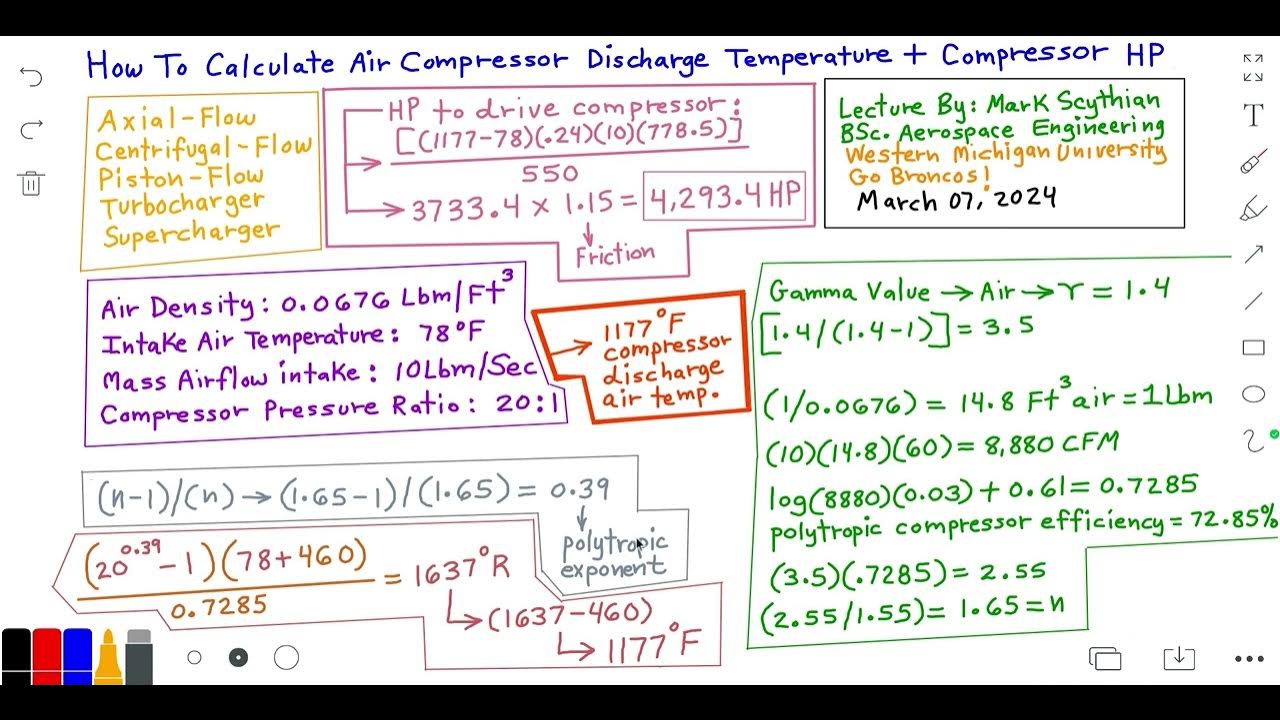 How To Calculate Air Compressor Discharge Temperature + Compressor HP
Axial-Flow
Centrifugal-Flow
Piston-Flow
Turbocharger
Supercharger
HP to drive compressor:
[(1177-78)(.24)(10)(778.5)]
550
3733.4 x 1.15 = 4,293.4 HP
Friction
Lecture By: Mark Scythian
BSc. Aerospace Engineering
Western Michigan University
Go Broncos!
March 07, 2024
Air Density: 0.0676 Lbm/Ft³
Intake Air Temperature: 78°F
Mass Airflow intake: 10Lbm/Sec
Compressor Pressure Ratio: 20:1
1177°F
compressor
discharge
air temp.
Gamma Value → Air → γ = 1.4
[1.4/(1.4-1)] = 3.5
(1/0.0676) = 14.8 Ft³ air = 1Lbm
(10)(14.8)(60) = 8,880 CFM
log(8880)(0.03) + 0.61 = 0.7285
polytropic compressor efficiency = 72.85%
(3.5)(.7285) = 2.55
(2.55/1.55) = 1.65 = n
(n-1)/(n) → (1.65-1)/(1.65) = 0.39
polytropic
exponent
(20^0.39 - 1)(78+460)
0.7285
= 1637°R
(1637-460)
1177°F
T